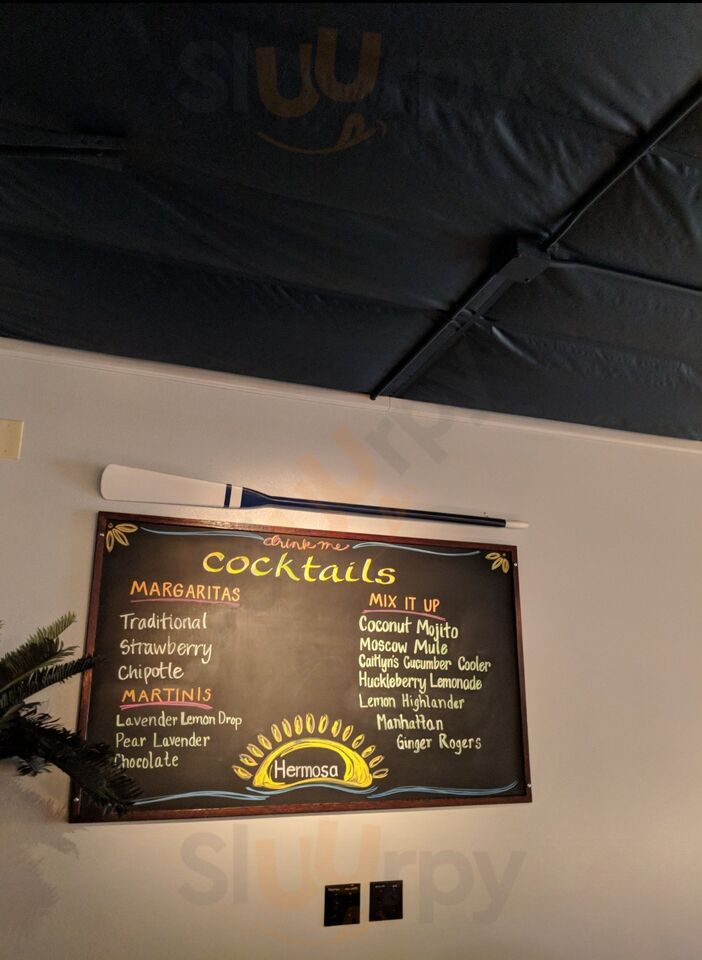 Sluurpy
Sluurpy
drink me
Cocktails
MARGARITAS
Traditional
Strawberry
Chipotle
MARTINIS
Lavender Lemon Drop
Pear Lavender
Chocolate
MIX IT UP
Coconut Mojito
Moscow Mule
Caitlyn's Cucumber Cooler
Huckleberry Lemonade
Lemon Highlander
Manhattan
Ginger Rogers
Hermosa
Sluurpy